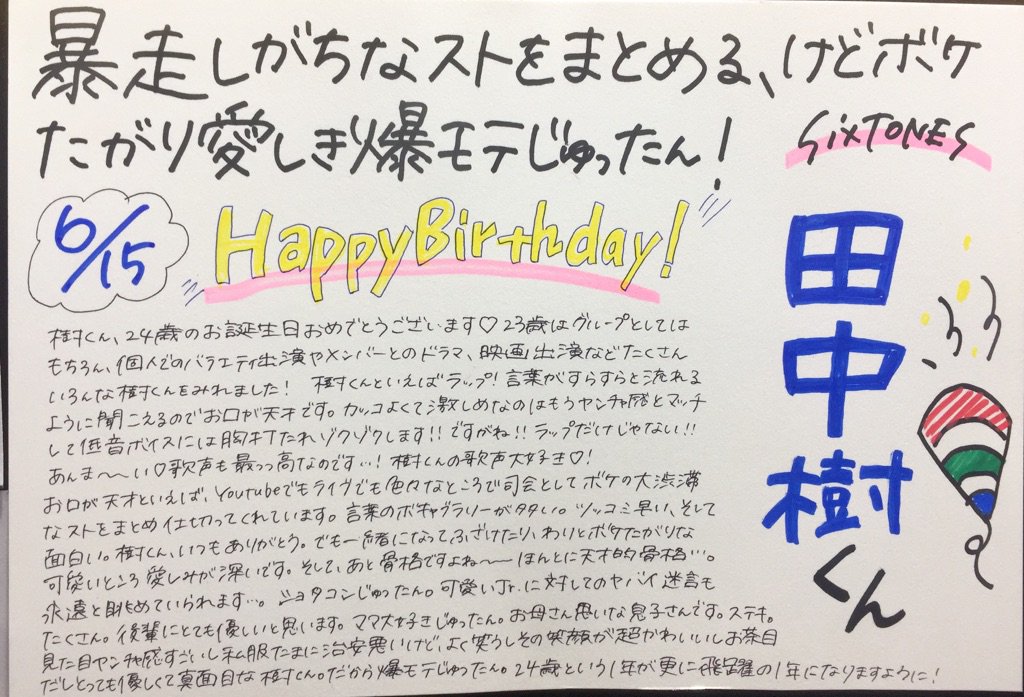 暴走しがちなストをまとめる、けどボケ
たがり愛しき爆モテじゅったん!
SixTONES
6/15
HappyBirthday!
田中樹くん
樹くん、24歳のお誕生日おめでとうございます♡23歳はグループとしては
もちろん、個人でのバラエティ出演やメンバーとのドラマ、映画出演などたくさん
いろんな樹くんをみれました! 樹くんといえばラップ!言葉がすらすらと流れる
ように聞こえるのでお口が天才です。カッコよくて激しめなのはもうヤンチャ感とマッチ
して低音ボイスには胸打たれゾクゾクします!!ですがね!!ラップだけじゃない!!
あんま〜〜い♡歌声も最っっ高なのです…!樹くんの歌声大好き♡!
お口が天才といえば、Youtubeでもライヴでも色々なところで司会としてボケの大渋滞
なストをまとめ仕切ってくれています。言葉のボキャブラリーが多い。ツッコミ早い、そして
面白い。樹くん、いつもありがとう。でも一緒になってふざけたり、わりとボケたがりな
可愛いところ愛しみが深いです。そして、あと骨格ですよね〜〜ほんとに天才的骨格…。
永遠と眺めていられます…。ショタコンじゅったん。可愛いJr.に対してのヤバイ迷言も
たくさん。後輩にとても優しいと思います。ママ大好きじゅったん。お母さん思いな息子さんです。ステキ。
見た目ヤンチャ感すごいし私服たまに治安悪いけど、よく笑うしその笑顔が超かわいいしお茶目
だしとっても優しくて真面目な樹くん。だから爆モテじゅったん。24歳という1年が更に飛躍の1年になりますように!